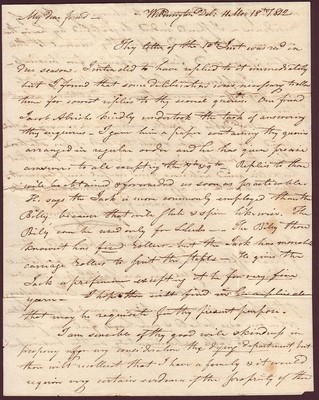 My dear friend — Wilmington Del. 11 Mo 18th 1812
Thy letter of the 10th Inst was recd in
due season. I intended to have replied to it immediately
but I found that some deliberation was necessary &
time for correct replies to thy several queries. Our friend
Jacob Alrichs kindly undertook the task of answering
thy enquiries — I gave him a paper containing thy queries
arranged in regular order and he has given
answers to all excepting the Replies to those
will be obtained & forwarded as soon as practicable.
He says the Jack is more commonly employed than the
Billy because that cards & spin likewise. The
Billy can be used only for — The Billy thou
knowest has fixed rollers but the Jack has moveable
carriage rollers to the — He gives the
Jack a preference excepting it be for very fine
yarn — I hope thou wilt find in his replies all
that may be requisite for thy present purpose.
I am sensible of thy good will & kindness in
proposing for my consideration the dying department but
thou wilt recollect that I have a family & it would
require very certain evidence of the prosperity of this